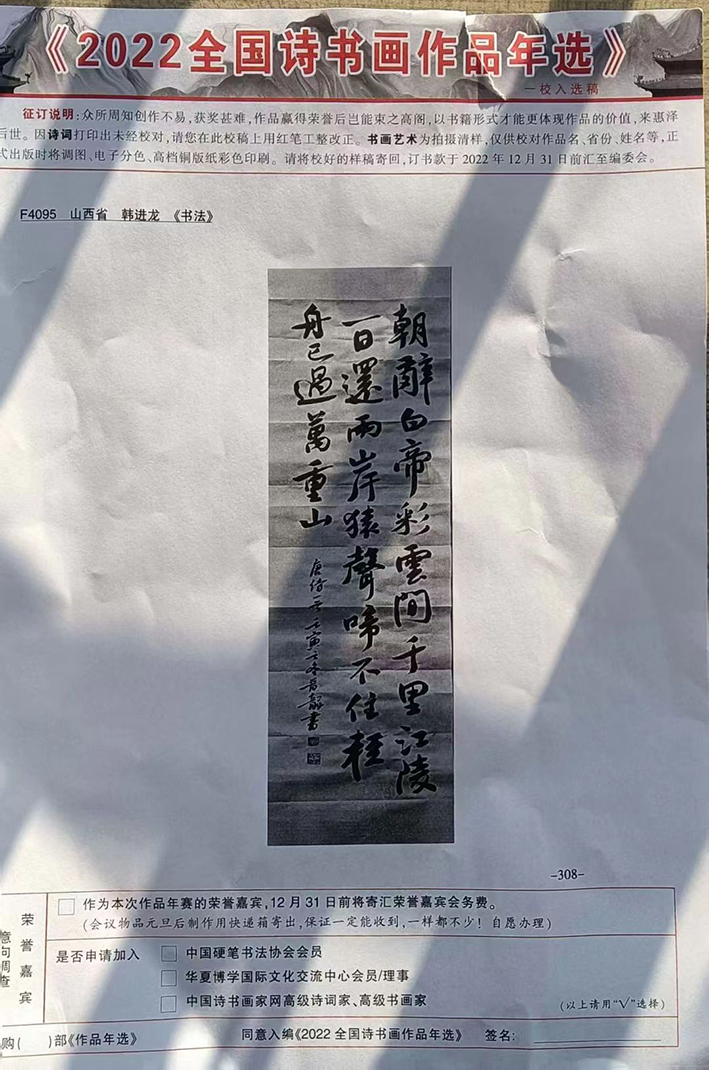 《2022全国诗书画作品年选》
一校入选稿
征订说明:众所周知创作不易,获奖甚难,作品赢得荣誉后岂能束之高阁,以书籍形式才能更体现作品的价值,来惠泽
后世。因诗词打印出未经校对,请您在此校稿上用红笔工整改正。书画艺术为拍摄清样,仅供校对作品名、省份、姓名等,正
式出版时将调图、电子分色、高档铜版纸彩色印刷。请将校好的样稿寄回,订书款于2022年12月31日前汇至编委会。
F4095 山西省 韩进龙 《书法》
朝辭白帝彩雲間千里江陵
一日還兩岸猿聲啼不住輕
舟已過萬重山
唐诗一首壬寅之冬
書
-308-
荣誉嘉宾
意向调查
作为本次作品年赛的荣誉嘉宾,12月31日前将寄汇荣誉嘉宾会务费。
(会议物品元旦后制作用快递箱寄出,保证一定能收到,一样都不少!自愿办理)
是否申请加入
中国硬笔书法协会会员
华夏博学国际文化交流中心会员/理事
中国诗书画家网高级诗词家、高级书画家
(以上请用“√”选择)
购( )部《作品年选》 同意入编《2022全国诗书画作品年选》 签名: